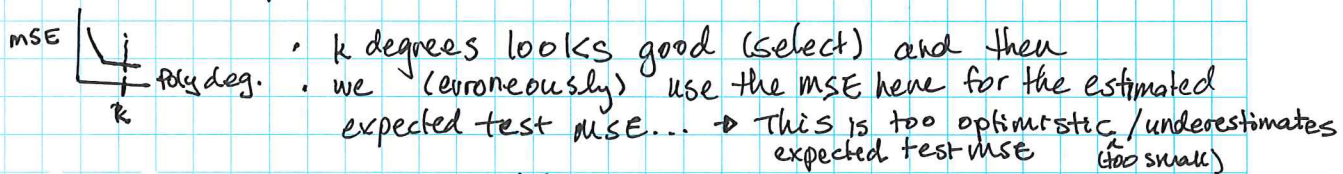 MSE
• k degrees looks good (select) and then
poly deg. • we (erroneously) use the MSE here for the estimated
k
expected test MSE... → This is too optimistic / underestimates
expected test MSE (too small)